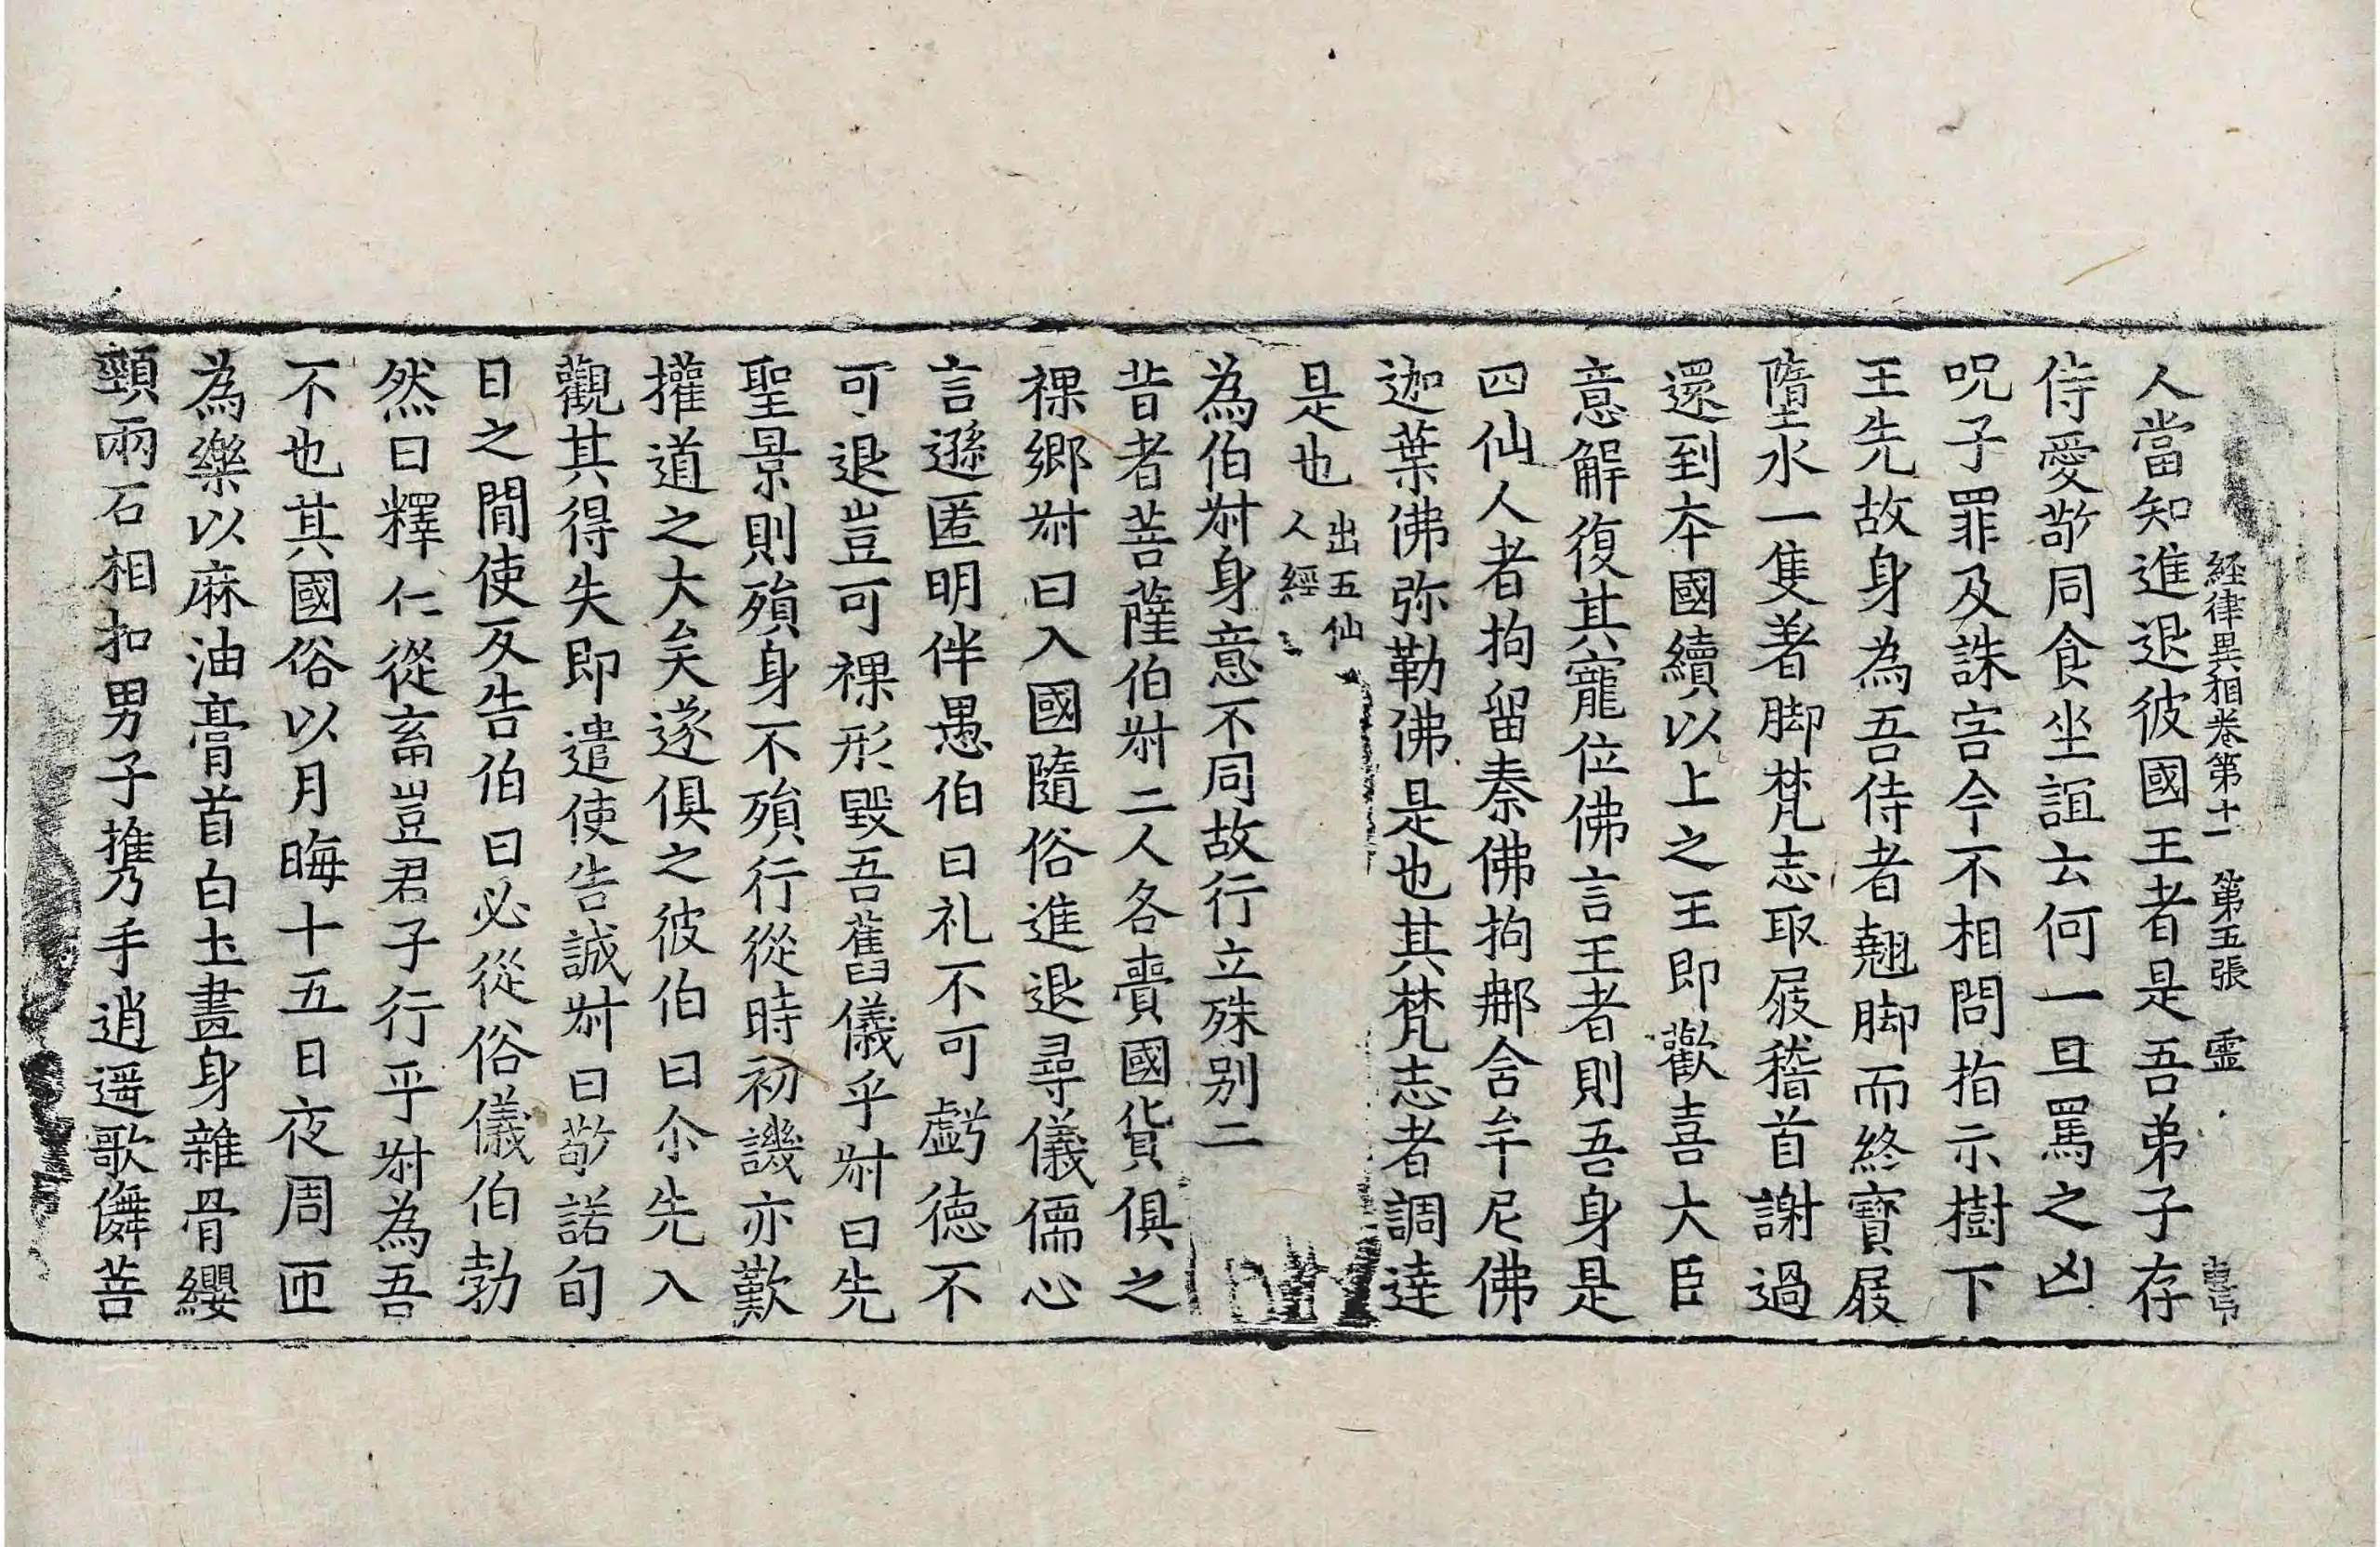 経律異相卷第十一　第五張　𤫊
人當知進退彼國王者是吾弟子存
侍愛敬同食坐誼云何一旦罵之凶
呪子罪及誅害今不相問指示樹下
王先故身為吾侍者翹脚而終寶屐
墮水一隻著脚梵志取屐稽首謝過
還到本國續以上之王即歡喜大臣
意解復其寵位佛言王者則吾身是
四仙人者拘留秦佛拘那舍牟尼佛
迦葉佛弥勒佛是也其梵志者調達
是也出五仙人經
為伯尗身意不同故行立殊别二
昔者菩薩伯尗二人各賷國貨俱之
裸鄉尗曰入國隨俗進退尋儀儒心
言遜匿明伴愚伯曰礼不可虧德不
可退豈可裸形毀吾舊儀乎尗曰先
聖景則殞身不殞行從時初譏亦歎
攉道之大矣遂俱之彼伯曰尒先入
觀其得失即遣使告誠尗曰敬諾旬
日之間使反告伯曰必從俗儀伯勃
然曰釋仁從畜豈君子行乎尗為吾
不也其國俗以月晦十五日夜周匝
為樂以麻油膏首白土畫身雜骨纓
頸兩石相扣男子携手逍遥歌儛菩